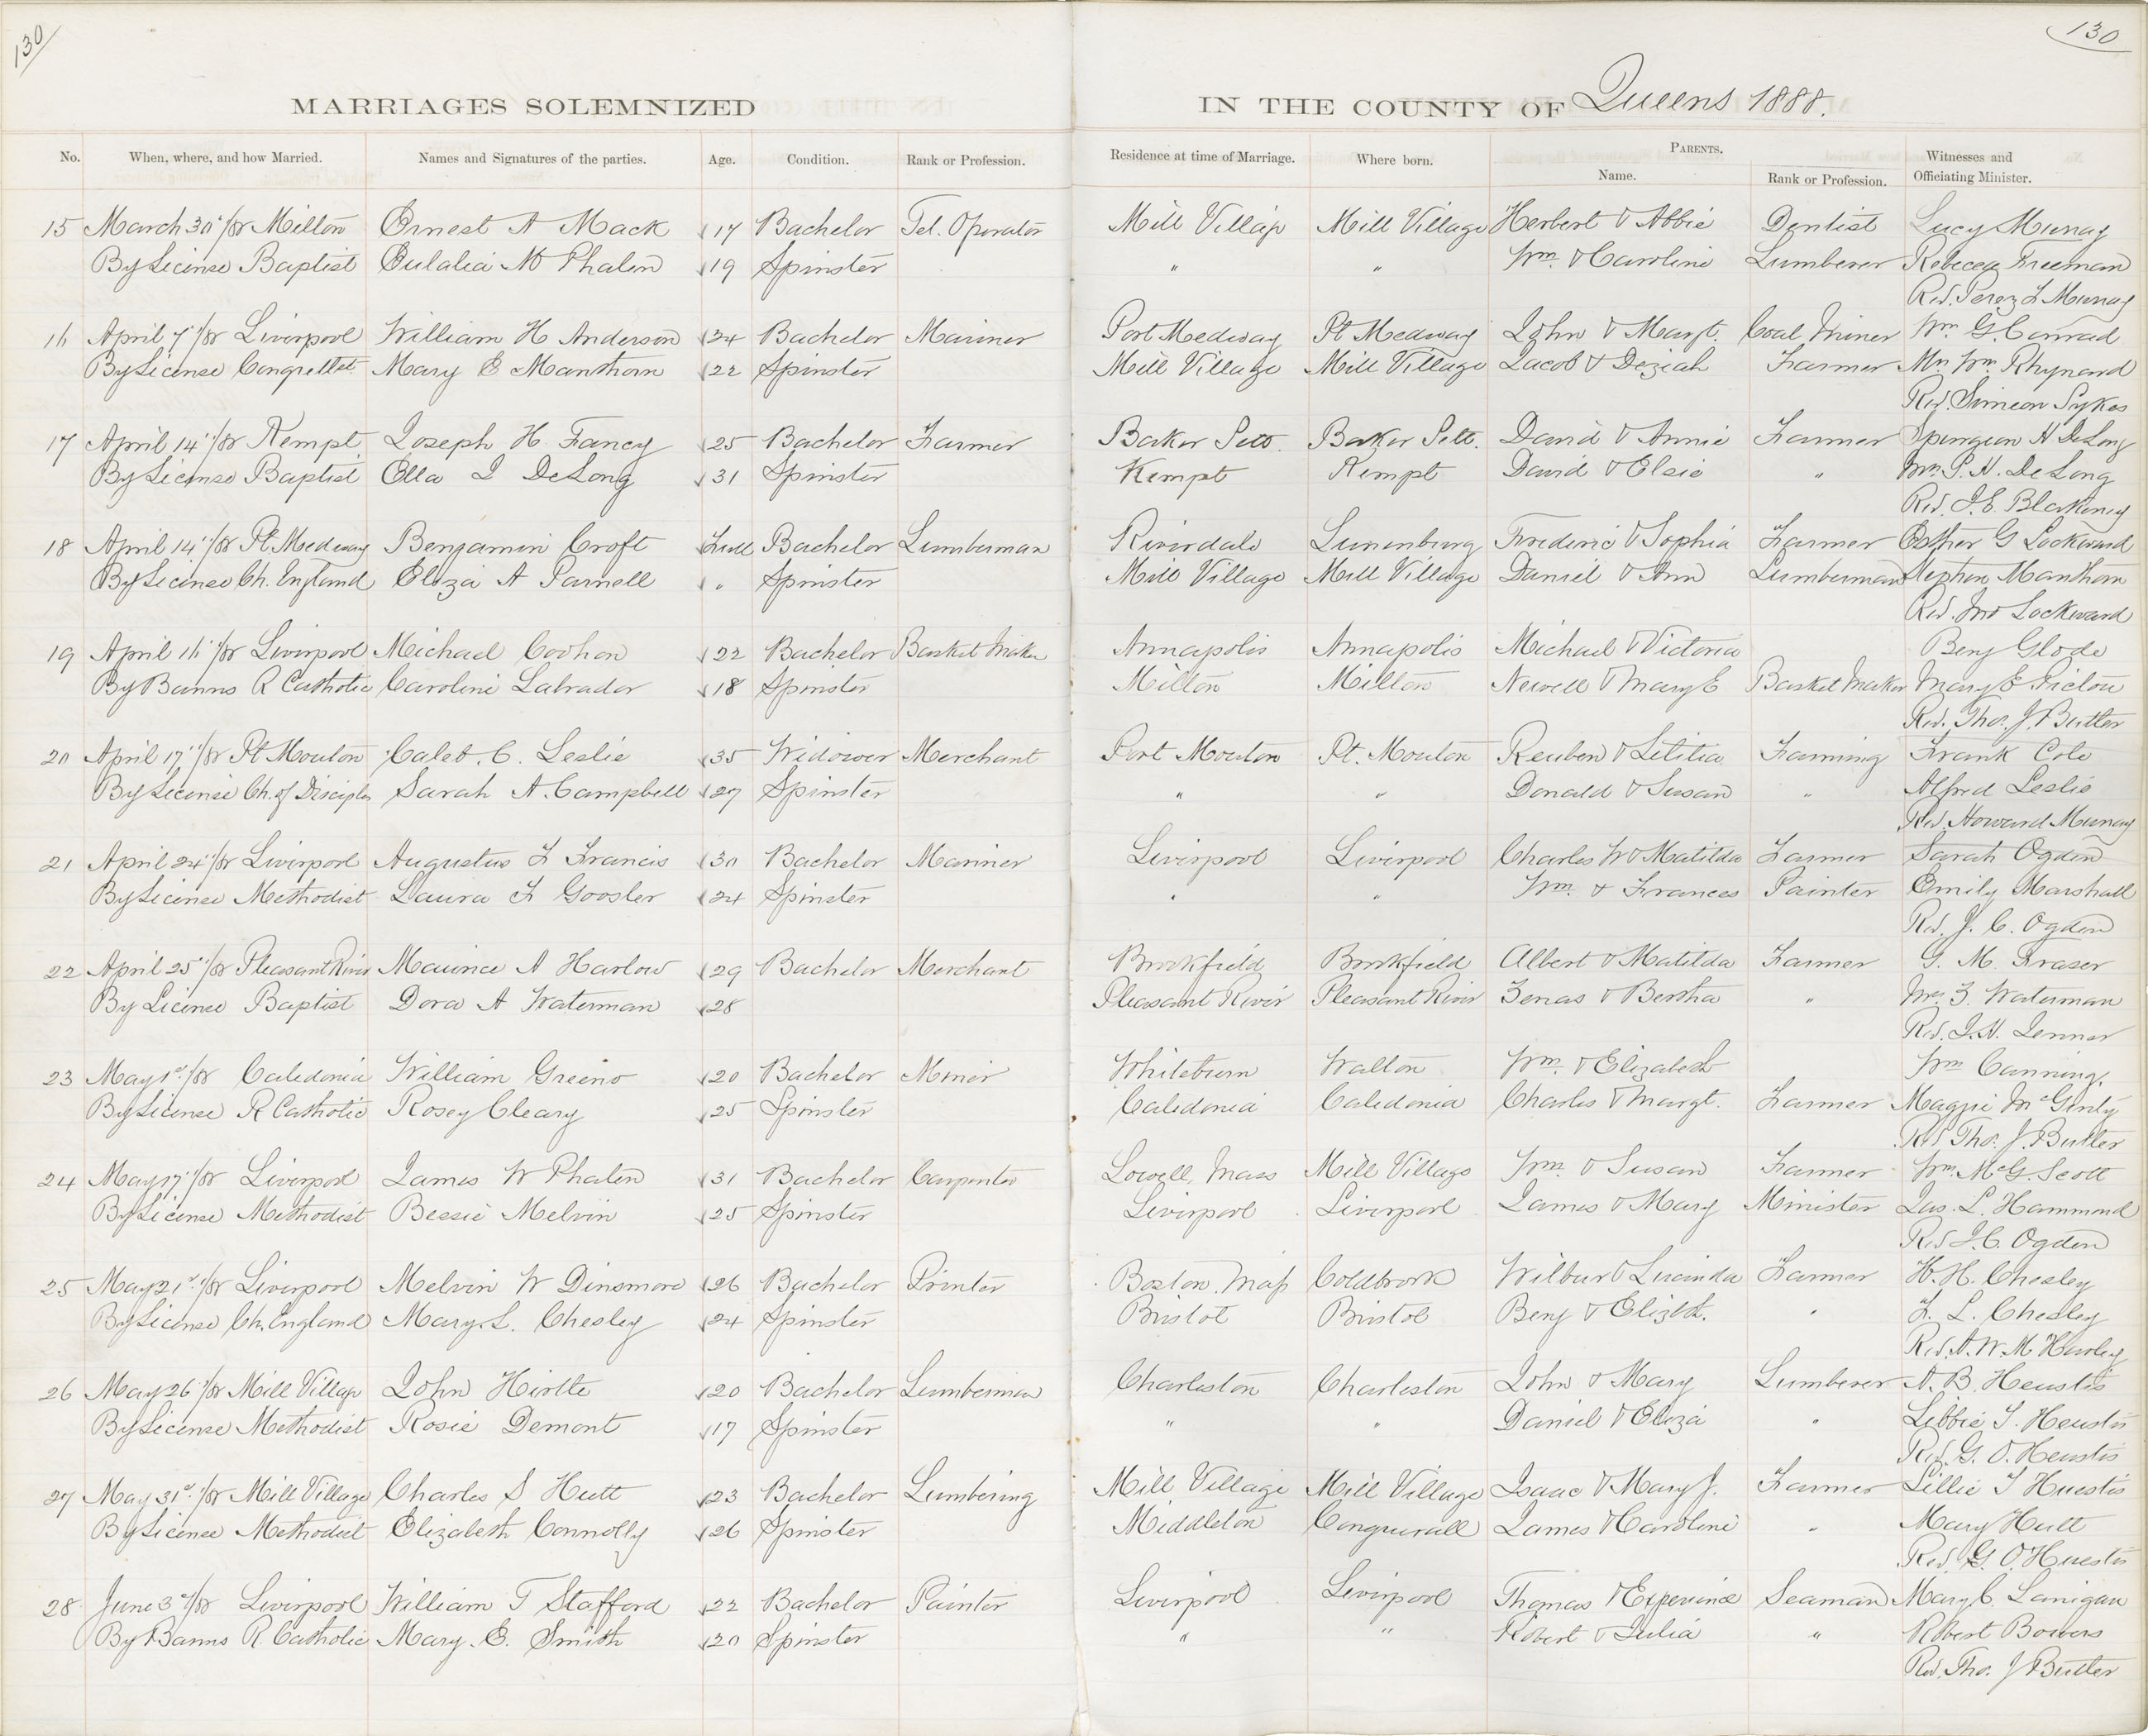 130
130
MARRIAGES SOLEMNIZED IN THE COUNTY OF Queens 1888.
No. When, where, and how Married. Names and Signatures of the parties. Age. Condition. Rank or Profession. Residence at time of Marriage. Where born. PARENTS. Name. Rank or Profession. Witnesses and Officiating Minister.
15 March 30"/88 Milton Ernest A Mack 17 Bachelor Tel. Operator Mill Village Mill Village Herbert & Abbie Dentist Lucy Murray
By License Baptist Eulalia M Phalen 19 Spinster " " Wm. & Caroline Lumberer Rebecca Freeman
Rev. Perez F Murray
16 April 7"/88 Liverpool William H Anderson 24 Bachelor Mariner Port Medway Pt Medway John & Margt. Coal Miner Wm G. Conrad
By License Mary E Manthorn 22 Spinster Mill Village Mill Village Jacob & Deziah Farmer Mrs Wm. Rhynard
Rev. Simeon Sykes
17 April 14"/88 Kempt Joseph H. Fancy 25 Bachelor Farmer Baker Sett. Baker Sett. David & Annie Farmer Spurgeon H DeLong
By License Baptist Ella J DeLong 31 Spinster Kempt Kempt David & Elsie " Mrs. P. H. DeLong
Rev. J. E. Blakeney
18 April 14"/88 Pt. Medway Benjamin Croft Full Bachelor Lumberman Riverdale Lunenburg Frederic & Sophia Farmer Esther G Lockward
By License Ch. England Eliza A Parnell " Spinster Mill Village Mill Village Daniel & Ann Lumberman Stephen Manthorn
Rev. Jno Lockward
19 April 16"/88 Liverpool Michael Coohon 22 Bachelor Basket Maker Annapolis Annapolis Michael & Victoria Benj Glode
By Banns R Catholic Caroline Labrador 18 Spinster Milton Milton Newell & Mary E Basket Maker Mary E Pictou
Rev. Tho. J. Butler
20 April 17"/88 Pt Mouton Caleb. C. Leslie 35 Widower Merchant Port Mouton Pt. Mouton Reuben & Letitia Farming Frank Cole
By License Ch. of Disciples Sarah A. Campbell 27 Spinster " " Donald & Susan " Alfred Leslie
Rev. Howard Murray
21 April 24"/88 Liverpool Augustus F Francis 30 Bachelor Mariner Liverpool Liverpool Charles W & Matilda Farmer Sarah Ogden
By License Methodist Laura F Goosler 24 Spinster " " Wm. & Frances Painter Emily Marshall
Rev. J. C. Ogden
22 April 25"/88 Pleasant River Maurice A Harlow 29 Bachelor Merchant Brookfield Brookfield Albert & Matilda Farmer G. M. Fraser
By License Baptist Dora A Waterman 28 Pleasant River Pleasant River Zenas & Bertha " Mrs. Z. Waterman
Rev. J. H. Jenner
23 May 1st/88 Caledonia William Greeno 20 Bachelor Miner Whiteburn Walton Wm. & Elizabeth Wm Canning.
By License R Catholic Rosey Cleary 25 Spinster Caledonia Caledonia Charles & Margt. Farmer Maggie McGinty
Rev Tho. J. Butler
24 May 17"/88 Liverpool James W Phalen 31 Bachelor Carpenter Lowell, Mass Mill Village Wm. & Susan Farmer Wm. McG. Scott
By License Methodist Bessie Melvin 25 Spinster Liverpool Liverpool James & Mary Minister Jas. L. Hammond
Rev J. C. Ogden
25 May 21st/88 Liverpool Melvin W Dinsmore 26 Bachelor Printer Boston Mass Coldbrook Wilbur & Lucinda Farmer H. H. Chesley
By License Ch. England Mary. L. Chesley 24 Spinster Bristol Bristol Benj & Elizth. " L. Chesley
Rev. A. W. M Harley
26 May 26"/88 Mill Village John Hirtle 20 Bachelor Lumberman Charleston Charleston John & Mary Lumberer A. B. Heustis
By License Methodist Rosie Demont 17 Spinster " " Daniel & Eliza " Libbie T. Heustis
Rev. G. O. Heustis
27 May 31st/88 Mill Village Charles S Hutt 23 Bachelor Lumbering Mill Village Mill Village Isaac & Mary J. Farmer Lillie T Huestis
By License Methodist Elizabeth Connolly 26 Spinster Middleton Conquerall James & Caroline " Mary Hutt
Rev. G. O Huestis
28 June 3d/88 Liverpool William T Stafford 22 Bachelor Painter Liverpool Liverpool Thomas & Experience Seaman Mary C. Lanigan
By Banns R. Catholic Mary. E. Smith 20 Spinster " " Robert & Julia " Robert Bowers
Rev. Tho. J Butler